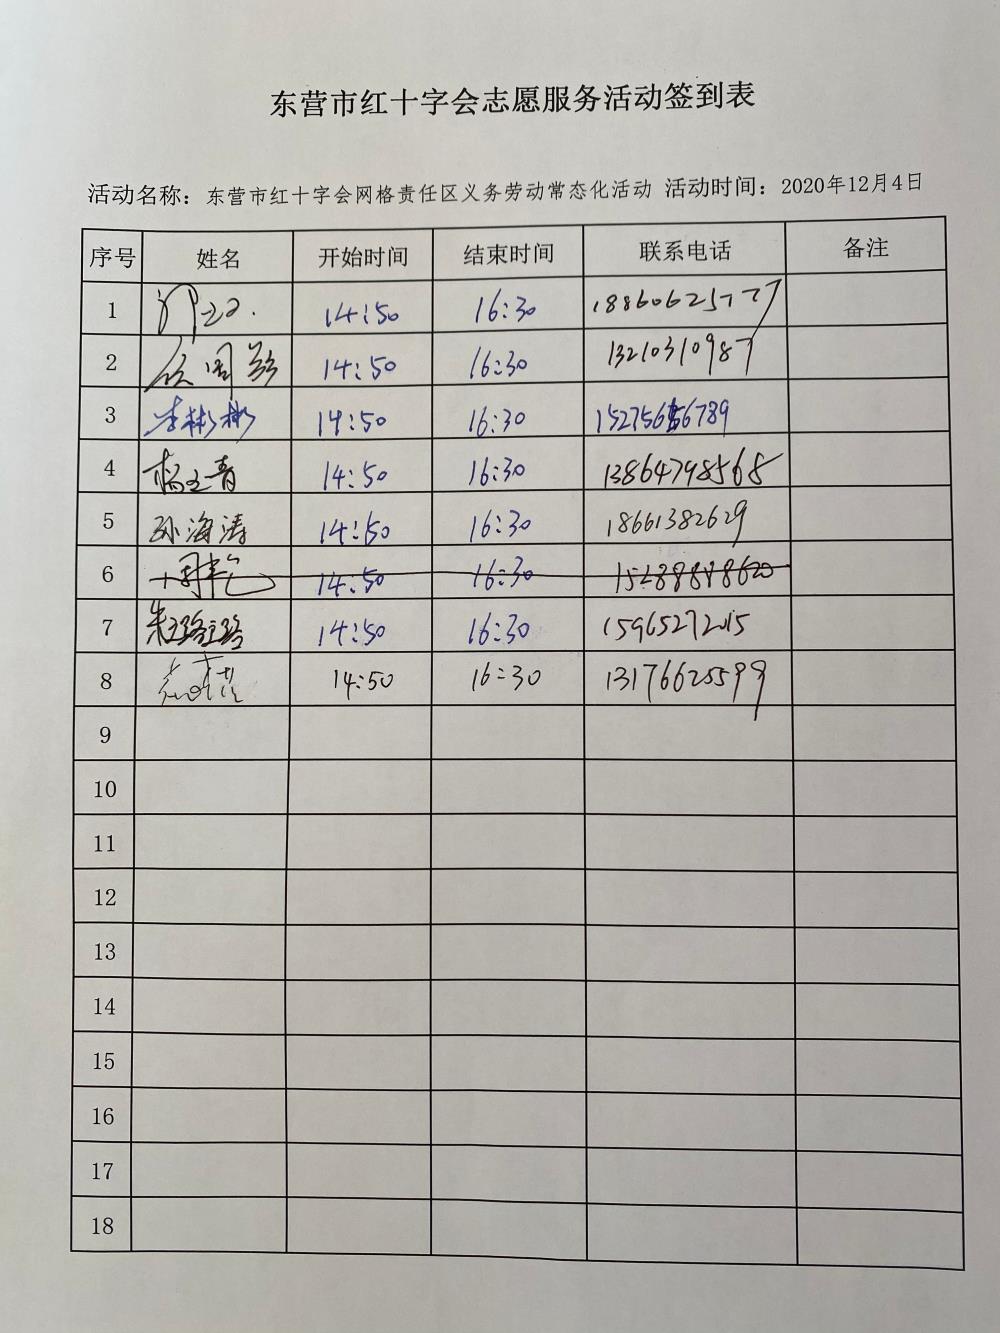 东营市红十字会志愿服务活动签到表
活动名称：东营市红十字会网格责任区义务劳动常态化活动 活动时间：2020年12月4日
序号 姓名 开始时间 结束时间 联系电话 备注
1 14:50 16:30 18860625777
2 14:50 16:30 13210310987
3 李彬彬 14:50 16:30
4 杨玉青 14:50 16:30 13864798568
5 孙海涛 14:50 16:30 18661382629
6 14:50 16:30
7 14:50 16:30 15965272015
8 14:50 16:30 13176625599
9
10
11
12
13
14
15
16
17
18